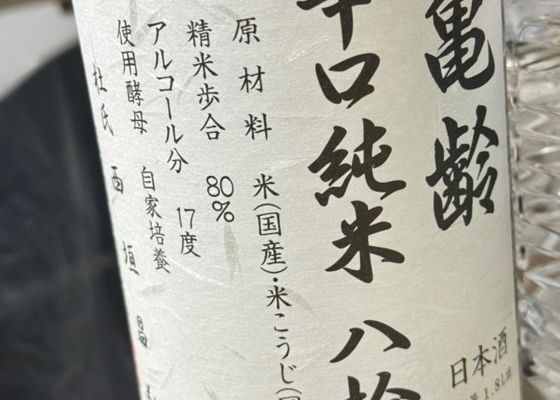 亀齢
辛口純米 八拾
原材料 米(国産)・米こうじ(国
精米歩合 80%
アルコール分 17度
使用酵母 自家培養
杜氏 西垣昌
日本酒
1.8L